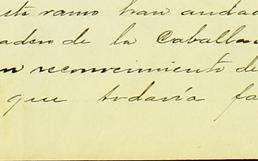 este ramo han andad
adero de la Caballe
n reconocimiento de
que todavía fa